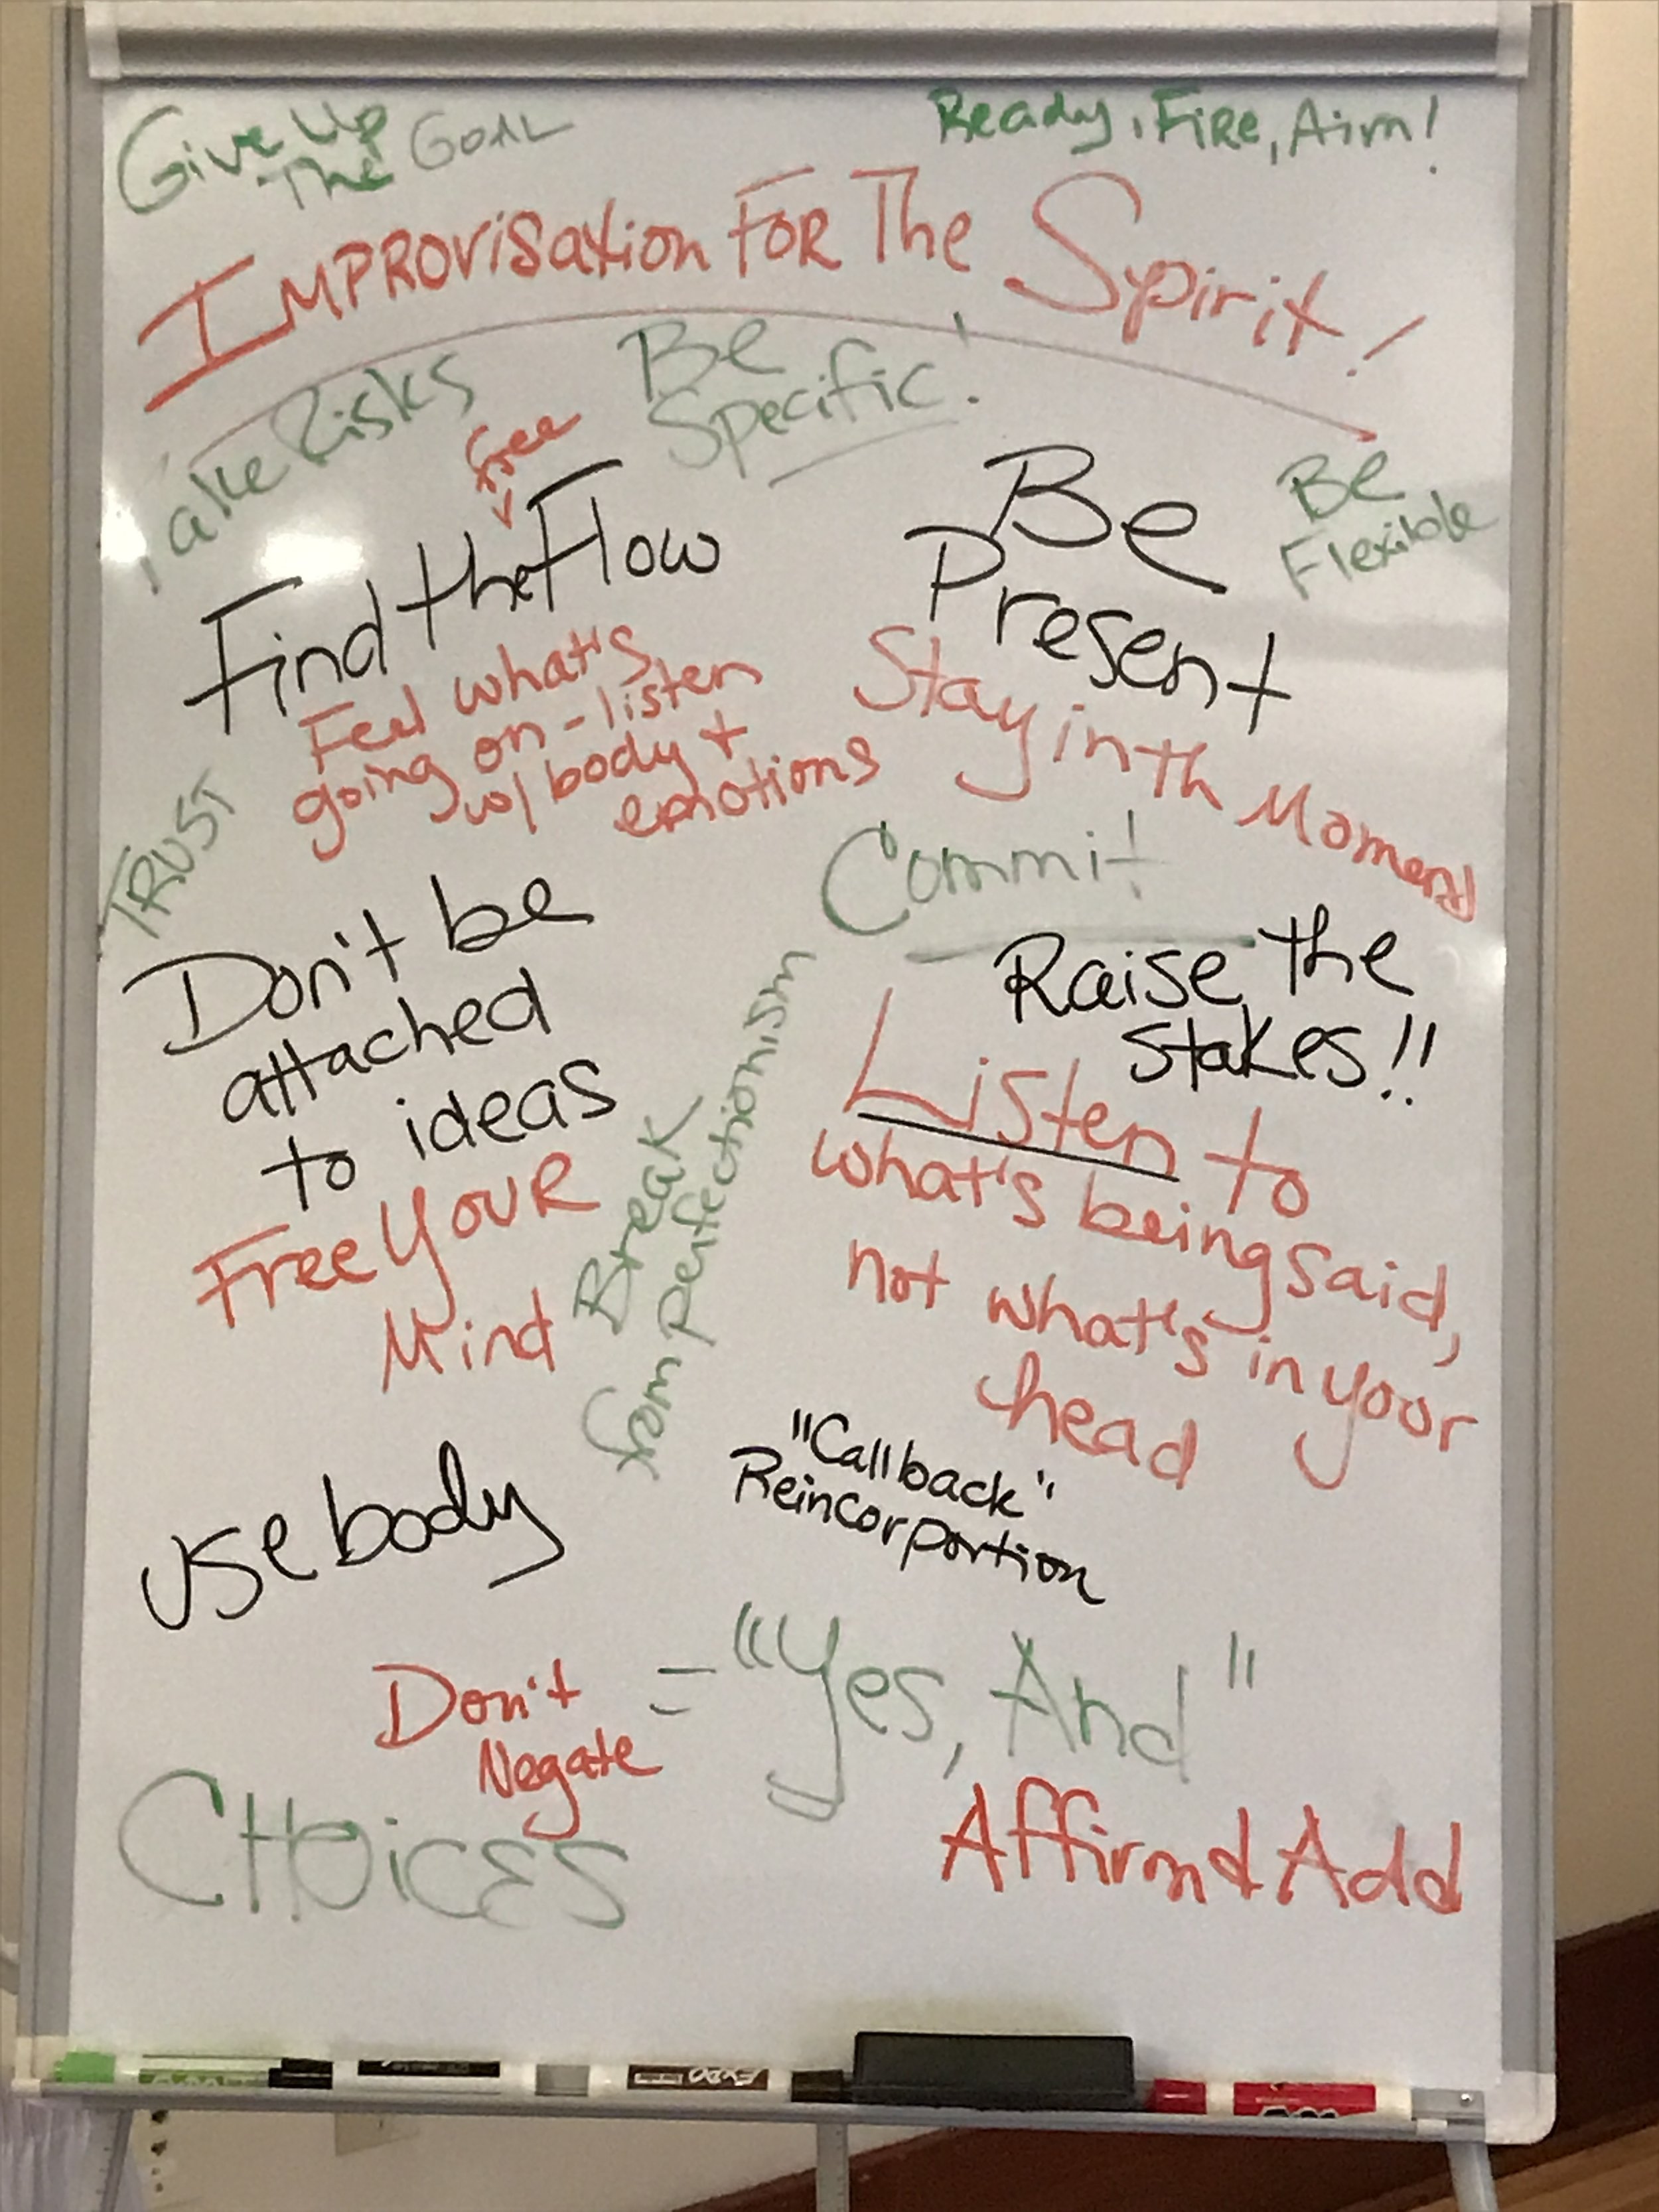 Give Up
The GOAL
Ready, Fire, Aim!
IMPROVisation FOR The Spirit!
Take Risks
Be
Specific!
free
Find the Flow
Feel what's
going on - listen
w/ body +
emotions
Be
Present
Be
Flexible
Stay in th Moment
TRUST
Commit
Don't be
attached
to ideas
Free YOUR
Mind
Break
from perfectionism
Raise the
stakes!!
Listen to
what's being said,
not what's in your
head
use body
"Callback"
Reincorportion
Don't
Negate
= "Yes, And"
CHOICES
Affirm & Add
EXPO